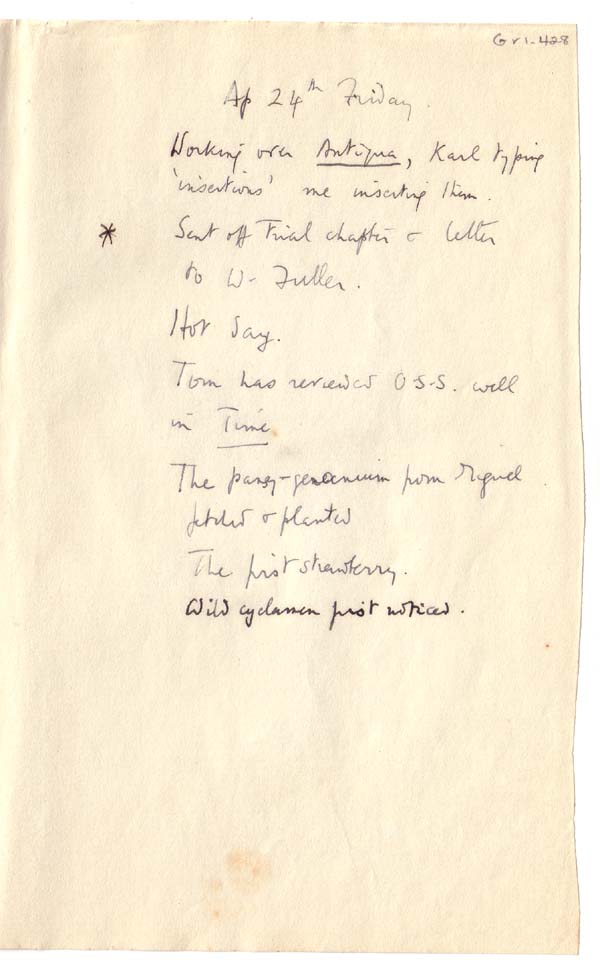 Gr1-428
Ap 24th Friday.
Working over Antigua, Karl typing
'insertions' me inserting them.
* Sent off Trial chapter & letter
to W- Fuller.
Hot day.
Tom has reviewed O-S-S. well
in Time
The pansy-geranium from Miguel
fetched & planted
The first strawberry.
Wild cyclamen first noticed.